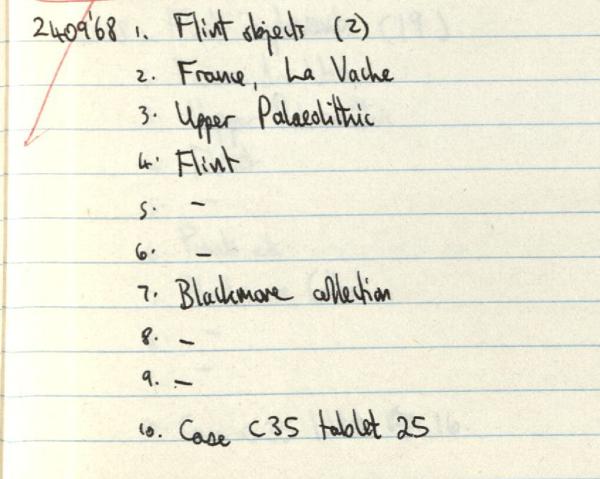 2409'68 1. Flint objects (2)
2. France, La Vache
3. Upper Palaeolithic
4. Flint
5. –
6. –
7. Blackmore collection
8. –
9. –
10. Case C35 tablet 25